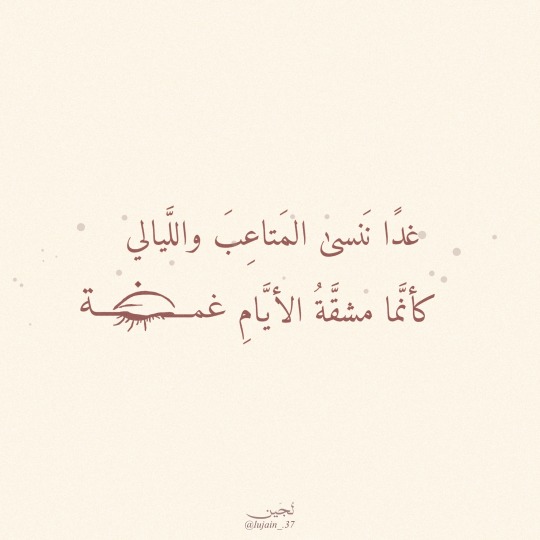 غدًا نَنسىٰ المَتاعِبَ واللَّيالي
كأنَّما مشقَّةُ الأيَّامِ غمضة
لُجَين
@lujain_.37